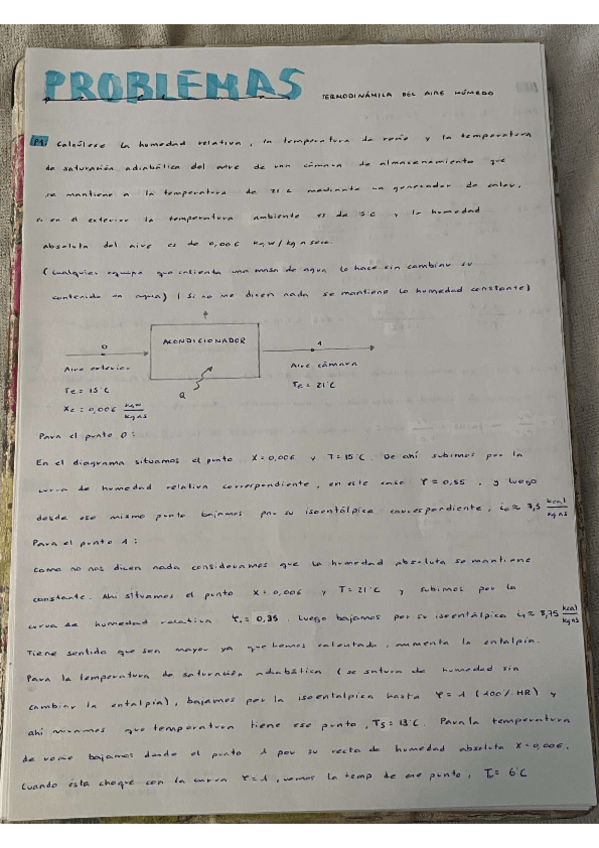 PROBLEMAS TERMODINÁMICA DEL AIRE HÚMEDO
P1 Calcúlese la humedad relativa, la temperatura de rocío y la temperatura
de saturación adiabática del aire de una cámara de almacenamiento que
se mantiene a la temperatura de 21 C mediante un generador de calor,
si en el exterior la temperatura ambiente es de 15 C y la humedad
absoluta del aire es de 0,006 kg w / kg a seco.
(Cualquier equipo que calienta una masa de agua lo hace sin cambiar su
contenido en agua) (Si no me dicen nada se mantiene la humedad constante)
ACONDICIONADOR
0
1
Aire exterior
Aire cámara
Te = 15°C
Tc = 21°C
Xe = 0,006 kg w / kg as
Q
Para el punto 0:
En el diagrama situamos el punto X = 0,006 y T = 15°C. De ahí subimos por la
curva de humedad relativa correspondiente, en este caso Ψ = 0,55, y luego
desde ese mismo punto bajamos por su isoentálpica correspondiente, i₀ ≈ 7,5 kcal / kg as
Para el punto 1:
Como no nos dicen nada consideramos que la humedad absoluta se mantiene
constante. Ahí situamos el punto X = 0,006 y T = 21°C y subimos por la
curva de humedad relativa Ψ₁ = 0,35. Luego bajamos por su isoentálpica i₁ ≈ 8,75 kcal / kg as
Tiene sentido que sea mayor ya que hemos calentado, aumenta la entalpía.
Para la temperatura de saturación adiabática (se satura de humedad sin
cambiar la entalpía), bajamos por la isoentalpica hasta Ψ = 1 (100% HR) y
ahí miramos que temperatura tiene ese punto, Ts = 13°C. Para la temperatura
de rocío bajamos desde el punto 1 por su recta de humedad absoluta X = 0,006.
Cuando ésta choque con la curva Ψ = 1, vemos la temp de ese punto, T = 6°C